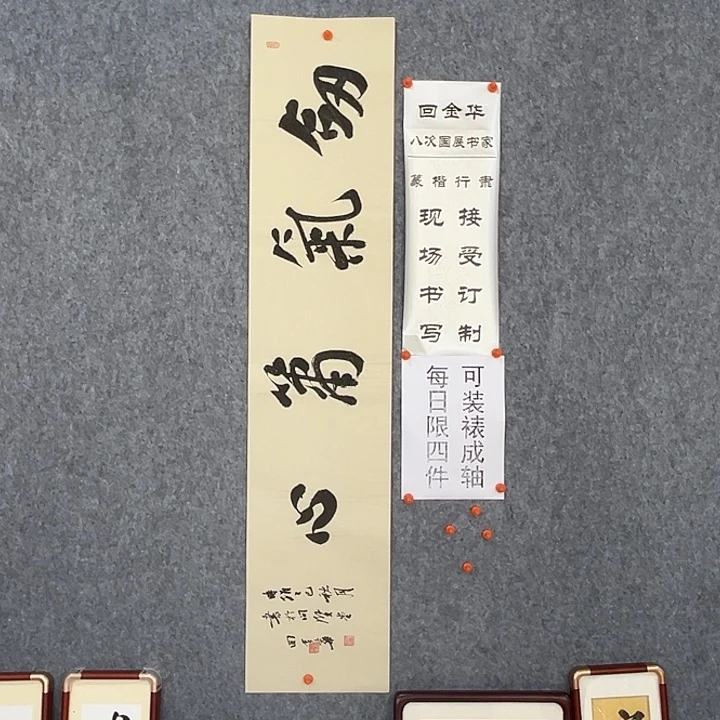 劍氣簫心
回金华
八次国展书家
篆楷行肃
接受订制
现场书写
可装裱成轴
每日限四件